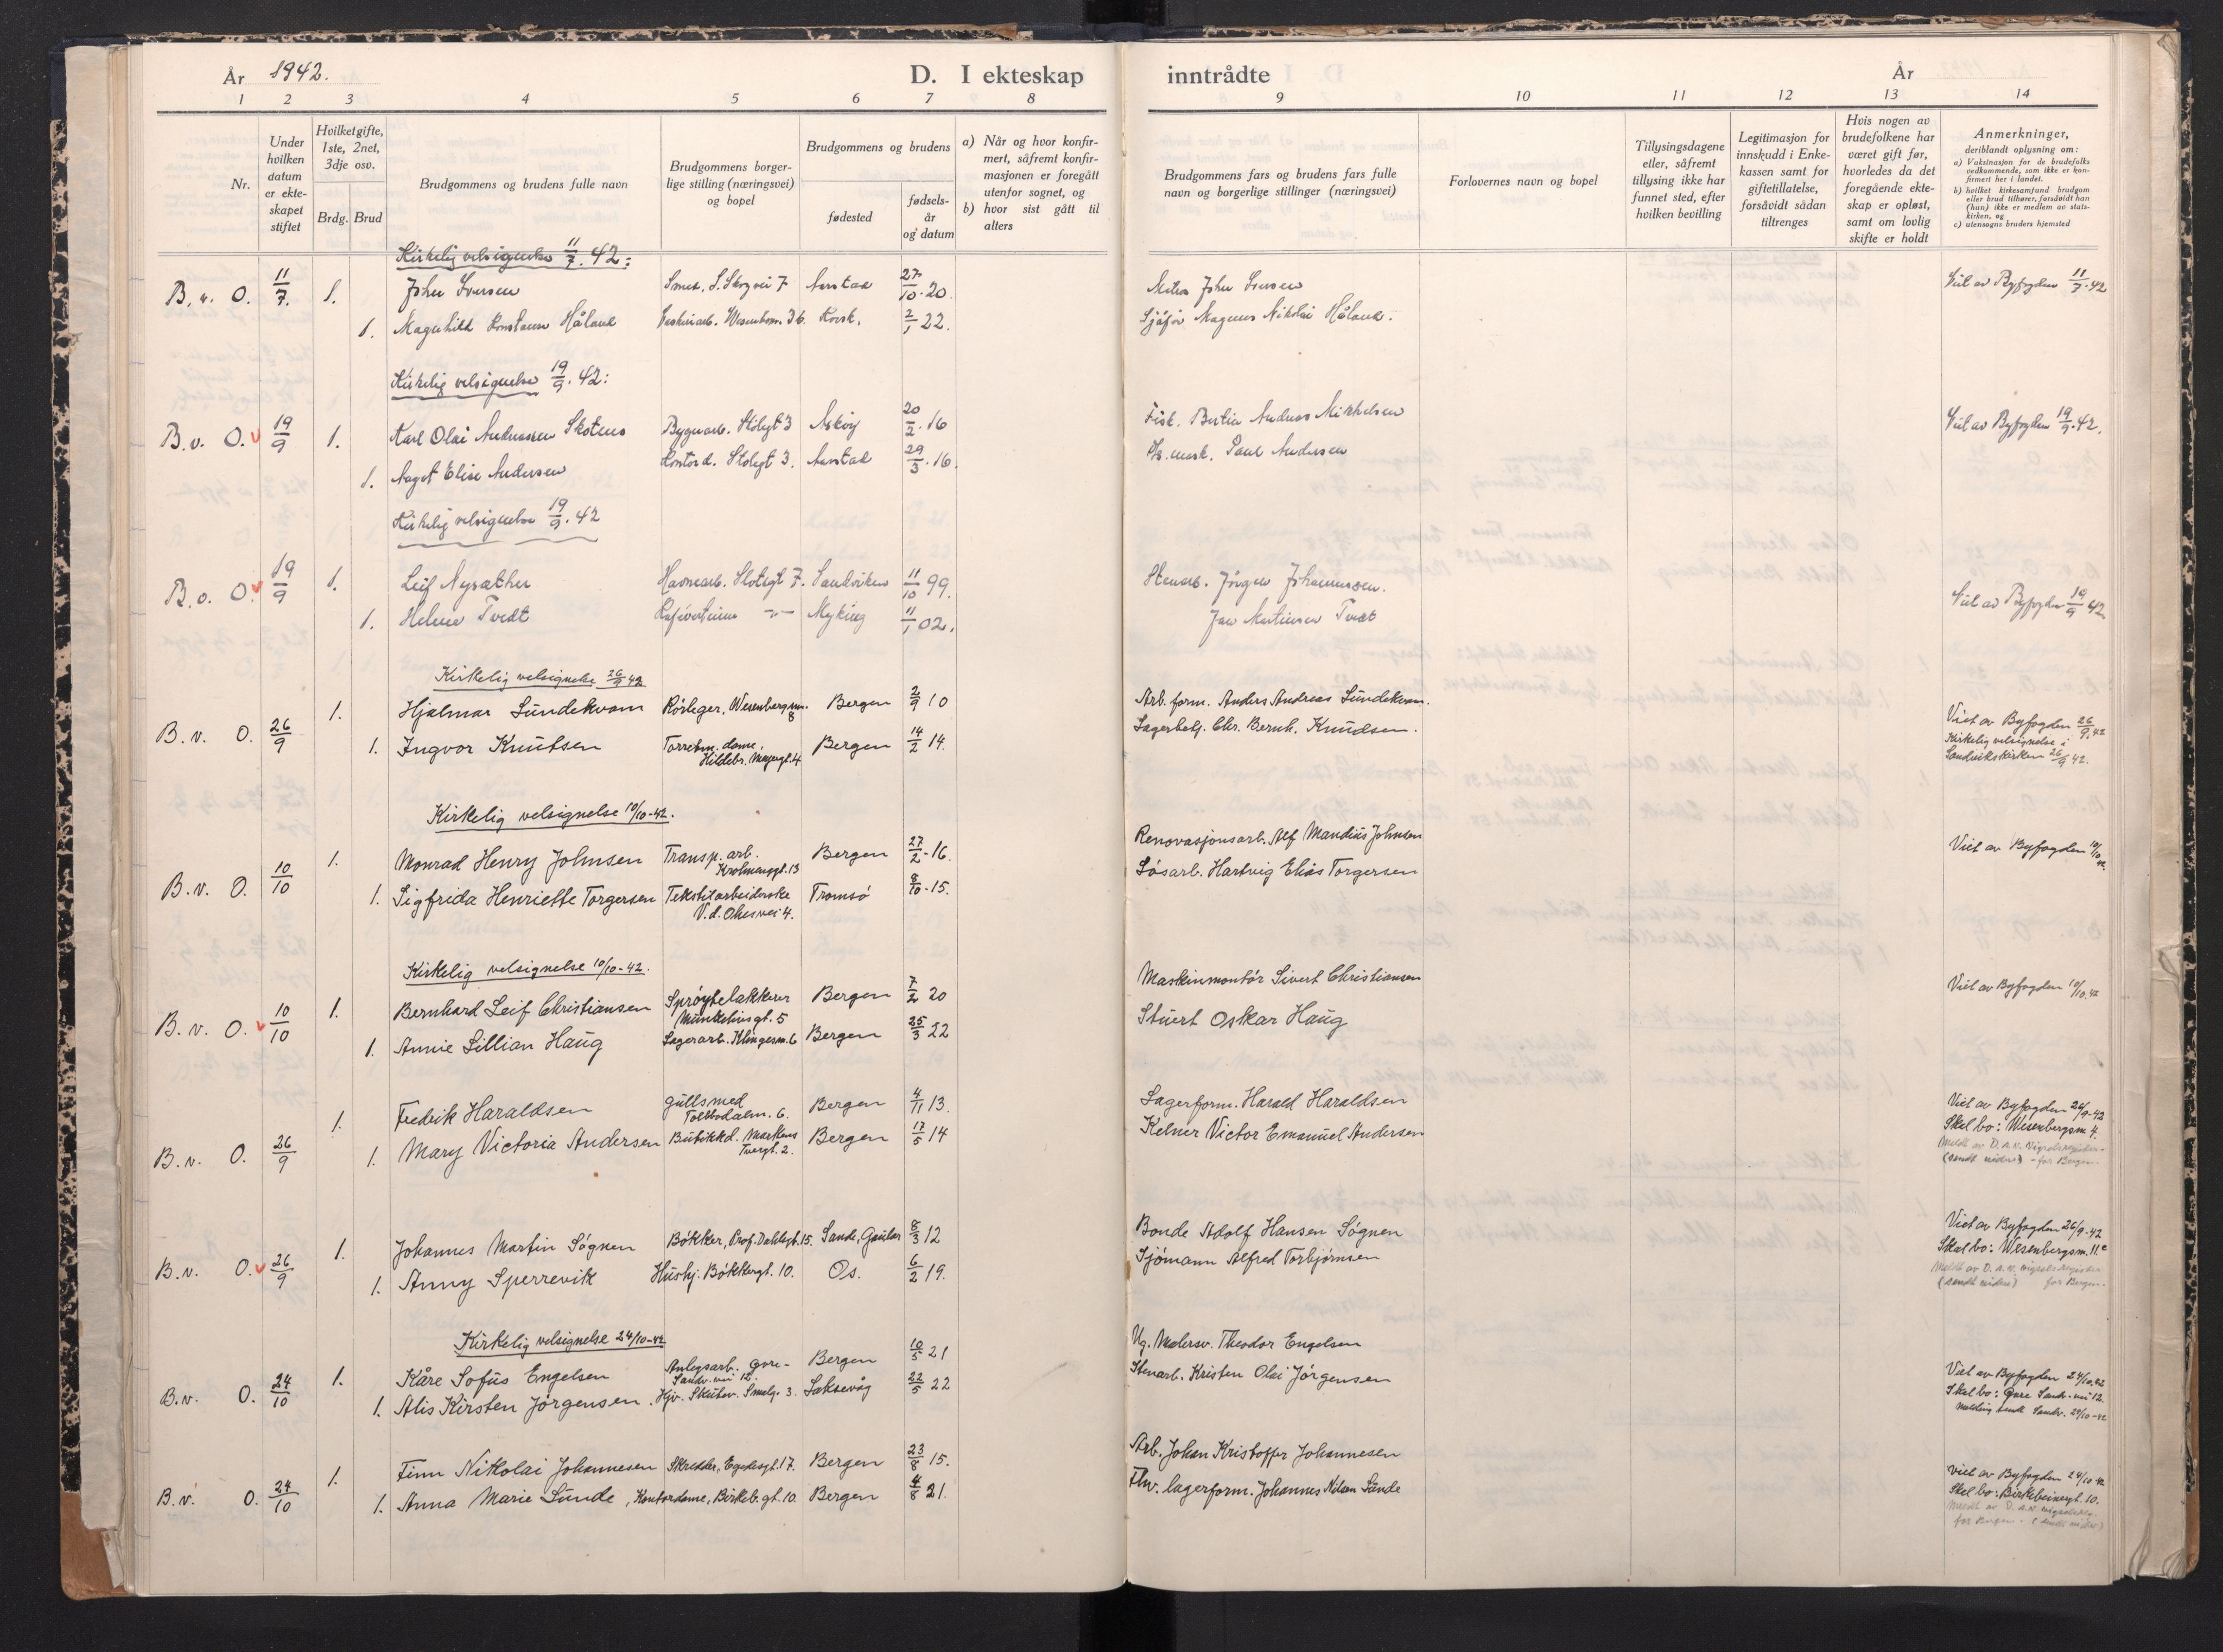 År 1942.
D. I ekteskap inntrådte
År
1 2 3 4 5 6 7 8 9 10 11 12 13 14
Nr.
Under hvilken datum er ekteskapet stiftet
Hvilket gifte, 1ste, 2net, 3dje osv.
Brdg. Brud
Brudgommens og brudens fulle navn
Brudgommens borgerlige stilling (næringsvei) og bopel
Brudgommens og brudens
fødested
fødselsår og datum
a) Når og hvor konfirmert, såfremt konfirmasjonen er foregått utenfor sognet, og
b) hvor sist gått til alters
Brudgommens fars og brudens fars fulle navn og borgerlige stillinger (næringsvei)
Forlovernes navn og bopel
Tillysingsdagene eller, såfremt tillysing ikke har funnet sted, efter hvilken bevilling
Legitimasjon for innskudd i Enkekassen samt for giftetillatelse, forsåvidt sådan tiltrenges
Hvis nogen av brudefolkene har været gift før, hvorledes da det foregående ekteskap er opløst, samt om lovlig skifte er holdt
Anmerkninger, deriblandt oplysning om:
a) Vaksinasjon for de brudefolks vedkommende, som ikke er konfirmert her i landet.
b) hvilket kirkesamfund brudgom eller brud tilhører, forsåvidt han (hun) ikke er medlem av statskirken, og
c) utensogns bruders hjemsted
Kirkelig velsignelse 11/7. 42:
B. v. O. 11/7. 1. John Iversen Smed, S. Skogvei 7 Aarstad 27/10. 20. John Iversen Viet av Byfogden 11/7. 42
1. Magnhild Konstanse Håland Wesenbgsm. 36. 2/1 22. Sjåfør Magnus Nikolai Håland.
Kirkelig velsignelse 19/9. 42:
B. v. O. v 19/9 1. Karl Olai Andreassen Skotnes Bygnarb. Stølegt 3 Askøy 20/2. 16 Fisk. Bertin Andreas Mikkelsen Viet av Byfogden 19/9. 42.
1. Aagot Elise Andersen Kontord. Stølegt 3. Aarstad 29/3. 16. Paul Andersen
Kirkelig velsignelse 19/9. 42
B. v. O. v 19/9 1. Leif Nysæther Havnearb. Stølegt 7. Sandviken 11/10 99. Stenarb. Jørgen Johannessen. Viet av Byfogden 19/9 42
1. Helene Tvedt Kafévertinne -"- Myking 11/1 02. Jan Martinsen Tvedt
Kirkelig velsignelse 26/9 42
B. v. O. 26/9 1. Hjalmar Sundekvam Rörleger, Wesenbergsm. 8 Bergen 2/9 10 Arb. form. Anders Andreas Sundekvam. Viet av Byfogden 26/9. 42
1. Ingvor Knutsen Torretm. dame, Hildebr. Meyergt. 4 Bergen 14/2 14. Lagerbetj. Chr. Bernh. Knudsen.
Kirkelig velsignelse i Sandvikskirken 26/9 42.
Kirkelig velsignelse 10/10-42.
B. v. O. 10/10 1. Monrad Henry Johnsen Transp. arb. Krohnenggt. 13 Bergen 27/2-16. Renovasjonsarb. Alf Mandius Johnsen Viet av Byfogden 10/10 42.
1. Sigfrida Henriette Torgersen Tekstilarbeiderske V. d. Ohesvei 4. Tromsö 8/10-15. Løsarb. Hartvig Elias Torgersen
Kirkelig velsignelse 10/10-42.
B. v. O. v 10/10 1. Bernhard Leif Christiansen Spröytelakkerer Munkebusgt. 5 Bergen 7/2 20 Maskinmontör Sivert Christiansen Viet av Byfogden 10/10. 42
1. Annie Lillian Haug Lagerarb. Klingesm. 6 Bergen 25/3 22 Stuert Oskar Haug
B. v. O. 26/9 1. Fredrik Haraldsen Gullsmed Tolbodalm. 6. Bergen 4/11 13. Lagerform. Harald Haraldsen Viet av Byfogden 26/9-42
1. Mary Victoria Andersen Butikkd. Markens Tvergt. 2. Bergen 17/5 14 Kelner Victor Emanuel Andersen Skal bo: Wesenbergsm 4.
Meldt av D. A. V. Vigselsregister (sendt videre) - for Bergen
B. v. O. v 26/9 1. Johannes Martin Sögnen Bökker, Prof. Dahlsgt. 15. Sande, Gaular 8/3 12 Bonde Adolf Hansen Sögnen Viet av Byfogden 26/9-42
1. Anny Sperrevik Hushj. Bökkergt. 10. Os. 6/2 19. Sjömann Alfred Torbjörnsen Skal bo: Wesenbergsm. 11c
Meldt av D. A. V. vigselsregister (sendt videre) for Bergen.
Kirkelig velsignelse 24/10-42
B. v. O. 24/10 1. Kåre Sofus Engelsen Anlegsarb. Øvre-Sandv. vei 12. Bergen 10/5 21 Ug. Malersv. Theodor Engelsen Viet av Byfogden 24/10. 42
1. Alis Kirsten Jörgensen. Hjv. Skutev. Smalg. 3. Laksevåg 22/5 22 Stenarb. Kristen Olai Jörgensen Skal bo: Øvre Sandv. vei 12.
Melding sendt Sandv. 29/10-42
B. v. O. 24/10 1. Finn Nikolai Johannesen Skredder, Egedesgt. 17. Bergen 23/8 15. Arb. Johan Kristoffer Johannesen Viet av Byfogden 24/10-42
1. Anna Marie Sunde, Kontordame, Birkeb. gt. 10. Bergen 4/8 21. Fhv. lagerform. Johannes Nilsen Sunde Skal bo: Birkebeinergt. 10.
Meldt av D. A. V. vigselsreg. for Bergen. (sendt videre)